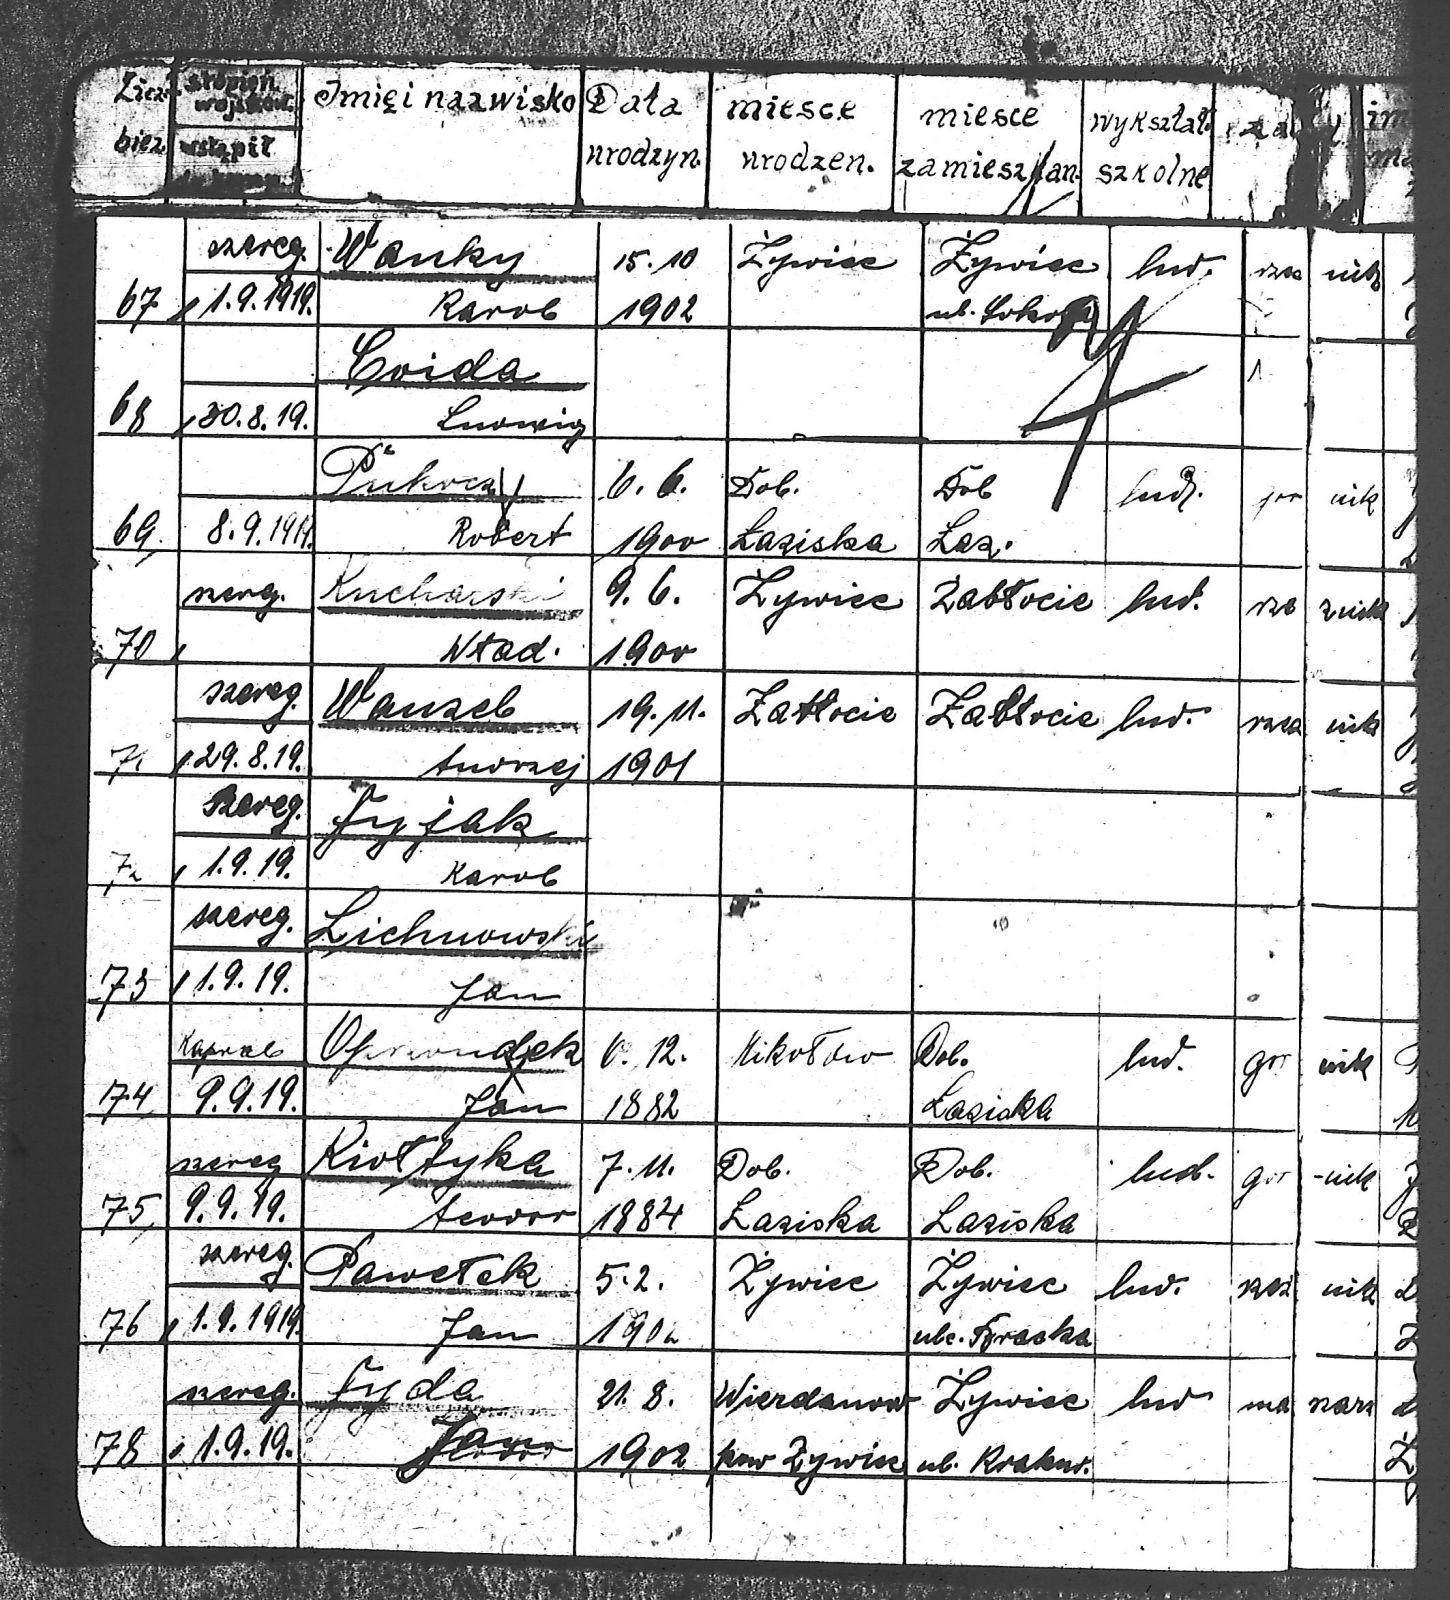 Licz. stopień wojskow. Imię i nazwisko Data miesce miesce wykształ.
bież. wstąpił urodzyn. urodzen. zamieszkan. szkolne
szereg. Wanky 15.10 Żywiec Żywiec lud.
67 1.9.1919. Karol 1902 ul.
Coida
68 30.8.19. Ludwig
6.6. Dob. Dob lud.
69. 8.9.1919. Robert 1900 Łaziska Łaz.
szereg. Kucharski 9.6. Żywiec Zabłocie lud.
70 Wład. 1900
szereg. Wanzel 19.11. Zabłocie Zabłocie lud.
71 29.8.19. Andrzej 1901
szereg. Fyjak
72 1.9.19. Karol
szereg. Lichnowski
73 1.9.19. Jan
Kapral 6.12. Mikołow Dob. lud. gór nik
74 9.9.19. Jan 1882 Łaziska
szereg Kiołtyka 7.11. Dob. Dob. lud. gór -nik
75 9.9.19. Teodor 1884 Łaziska Łaziska
szereg. Pawełek 5.2. Żywiec Żywiec lud. nik
76 1.9.1919. Jan 1902
szereg. Fyda 21.8. Żywiec lud
78 1.9.19. Jan 1902 pow Żywiec ul. Krakow.